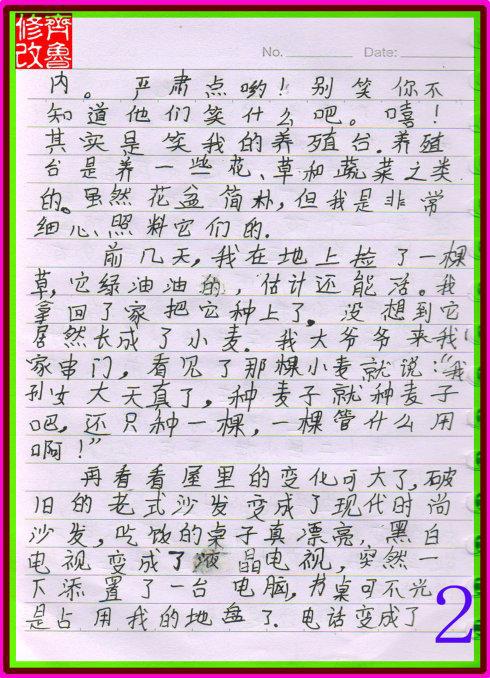 修齐
改鲁
No. Date:
内。严肃点哟！别笑你不
知道他们笑什么吧。嘻！
其实是笑我的养殖台.养殖
台是养一些花、草和蔬菜之类
的。虽然花盆简朴,但我是非常
细心照料它们的.
前几天,我在地上捡了一棵
草,它绿油油的,估计还能活。我
拿回了家把它种上了,没想到它
居然长成了小麦.我大爷爷来我
家串门,看见了那棵小麦就说:“我
孙女大天真了,种麦子就种麦子
吧,还只种一棵,一棵管什么用
啊！”
再看看屋里的变化可大了,破
旧的老式沙发变成了现代时尚
沙发,吃饭的桌子真漂亮,黑白
电视变成了液晶电视,突然一
下添置了一台电脑,书桌可不光
是占用我的地盘了.电话变成了
2